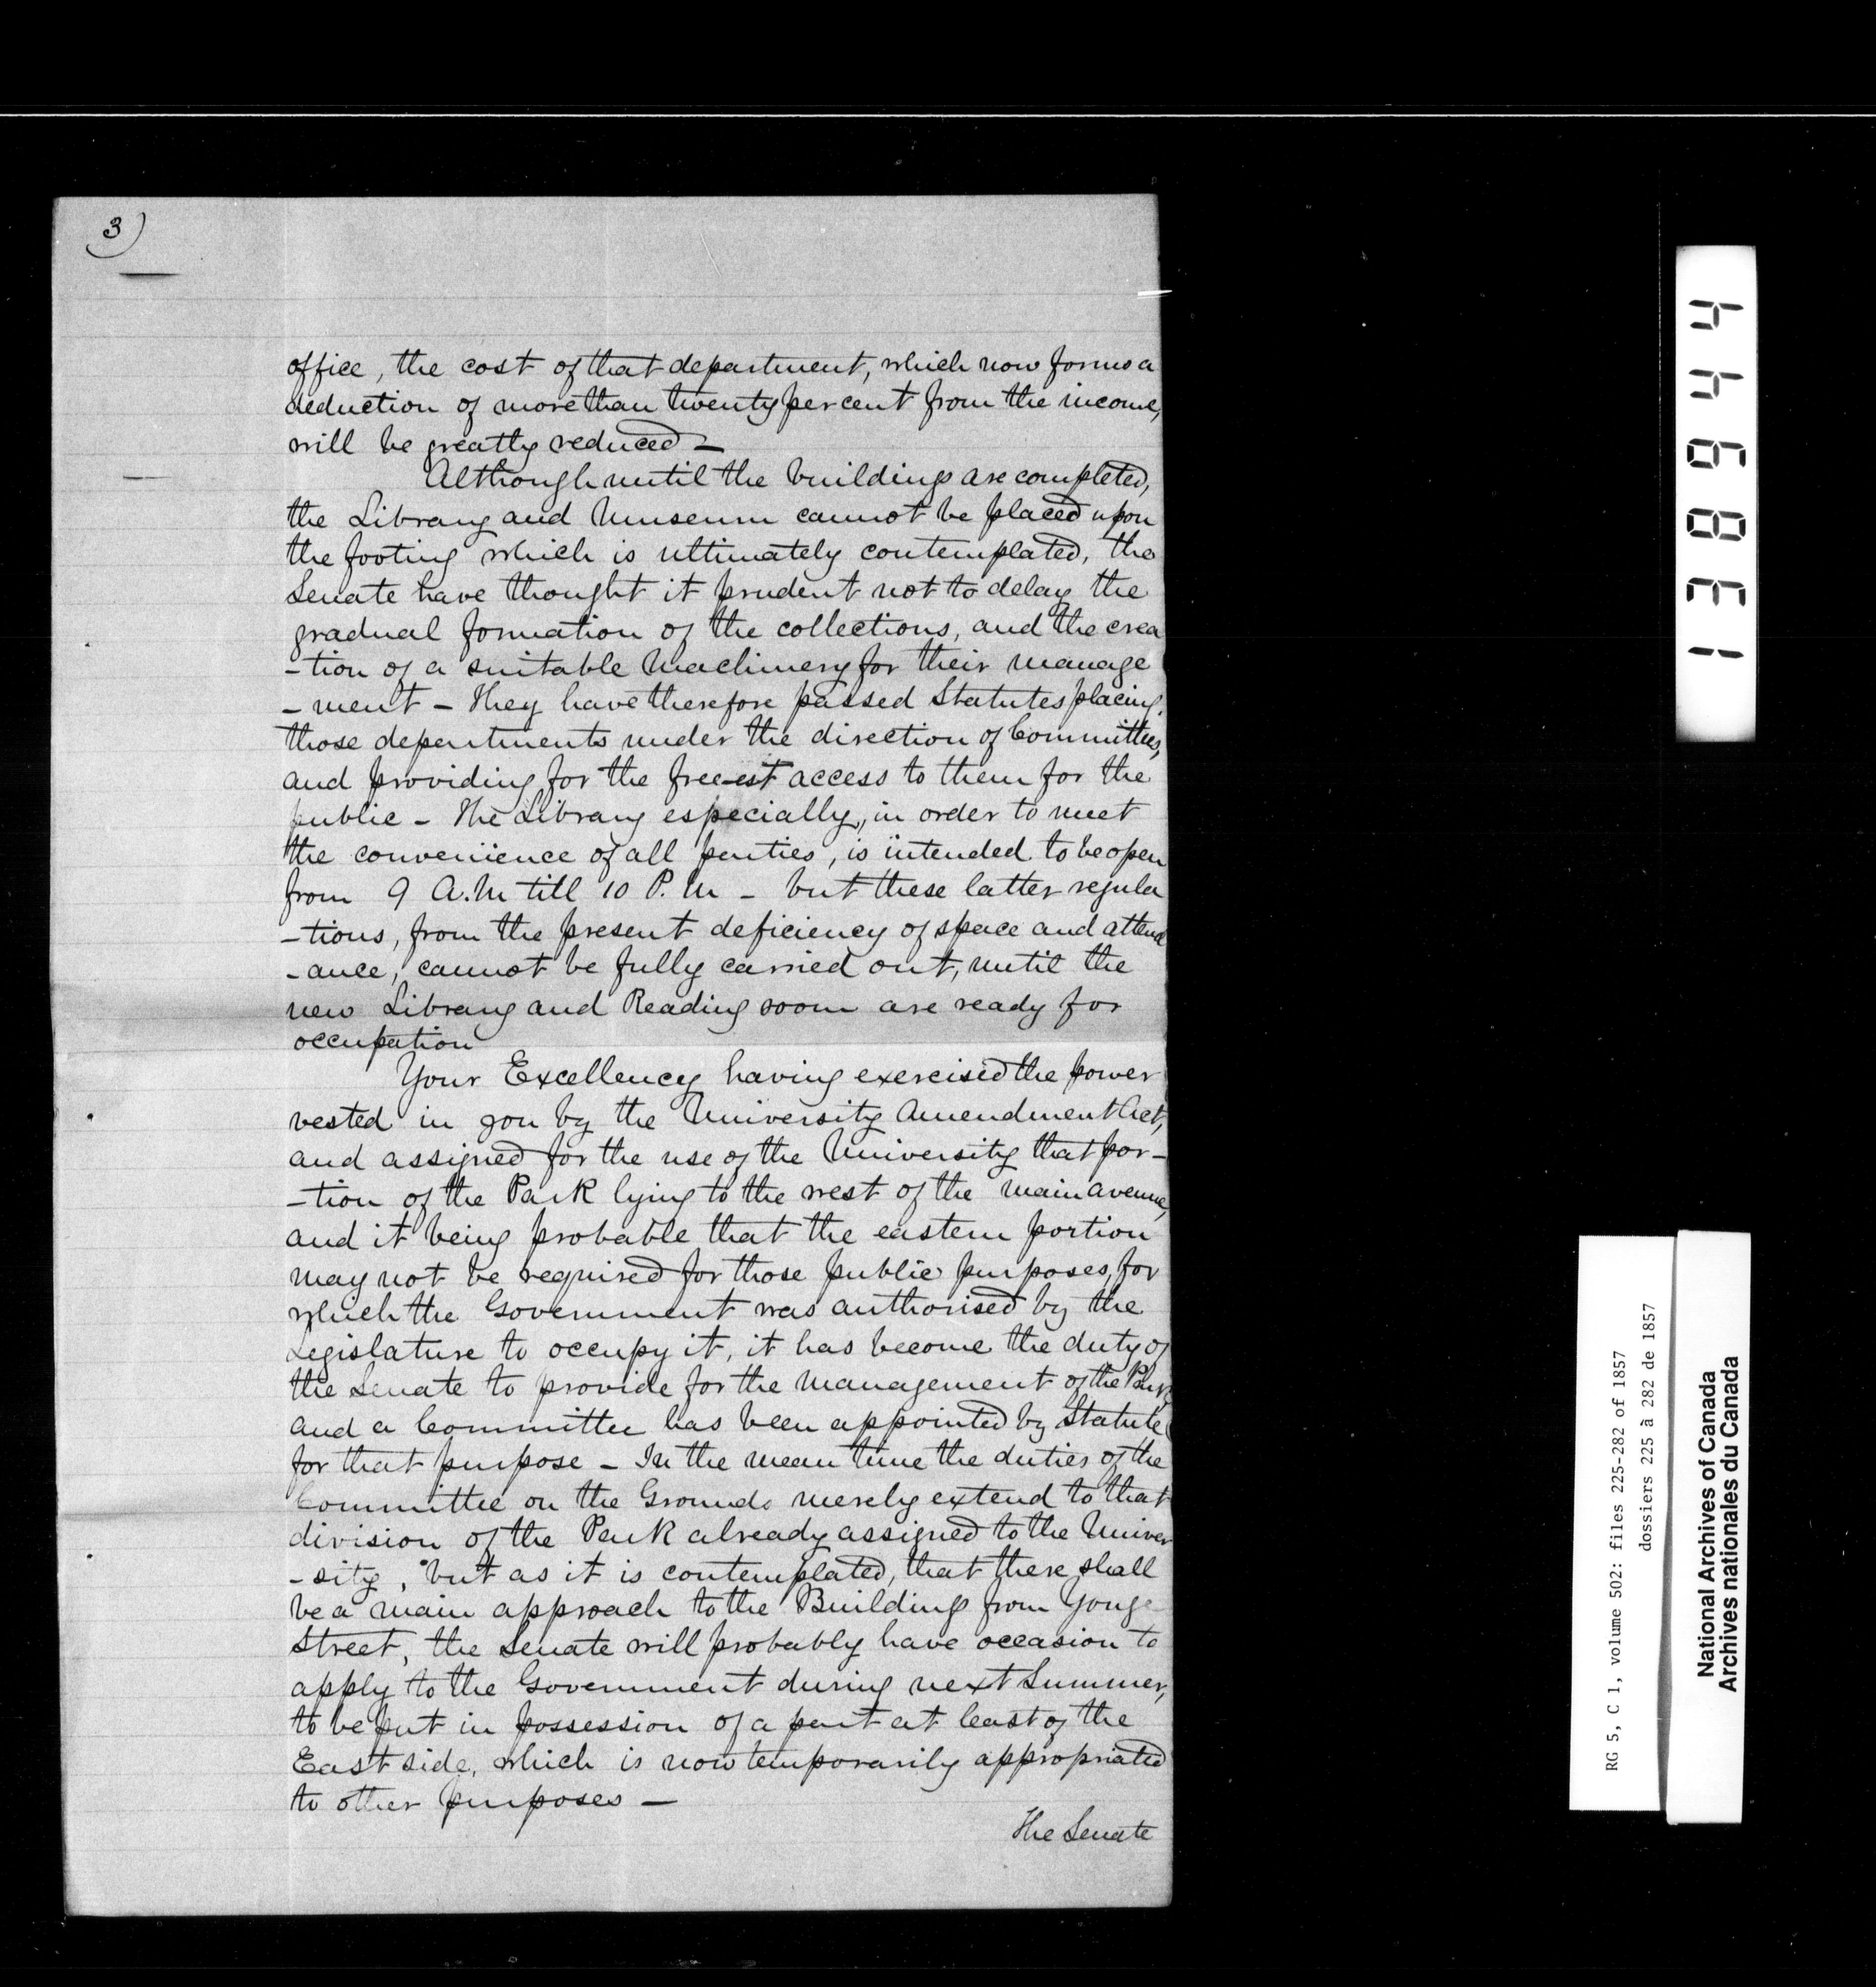 3)
office, the cost of that department, which now forms a
deduction of more than twenty per cent from the income,
will be greatly reduced –
Although until the buildings are completed,
the Library and Museum cannot be placed upon
the footing which is ultimately contemplated, the
Senate have thought it prudent not to delay the
gradual formation of the collections, and the crea
-tion of a suitable Machinery for their manage
-ment – They have therefore passed Statutes placing
those departments under the direction of Committees,
and providing for the freeest access to them for the
public – The Library especially, in order to meet
the convenience of all parties, is intended to be open
from 9 A.M till 10 P.M – but these latter regula
-tions, from the present deficiency of space and attend
-ance, cannot be fully carried out, until the
new Library and Reading room are ready for
occupation
Your Excellency having exercised the power
vested in you by the University Amendment Act,
and assigned for the use of the University that por-
-tion of the Park lying to the west of the main avenue,
and it being probable that the eastern portion
may not be required for those public purposes, for
which the Government was authorised by the
Legislature to occupy it, it has become the duty of
the Senate to provide for the management of the Park
and a Committee has been appointed by Statute
for that purpose – In the mean time the duties of the
Committee on the Grounds merely extend to that
division of the Park already assigned to the Univer
-sity, but as it is contemplated, that there shall
be a main approach to the Building from Yonge
Street, the Senate will probably have occasion to
apply to the Government during next Summer,
to be put in possession of a part at least of the
East side, which is now temporarily appropriated
to other purposes –
The Senate
138944
RG 5, C 1, volume 502: files 225-282 of 1857
dossiers 225 à 282 de 1857
National Archives of Canada
Archives nationales du Canada